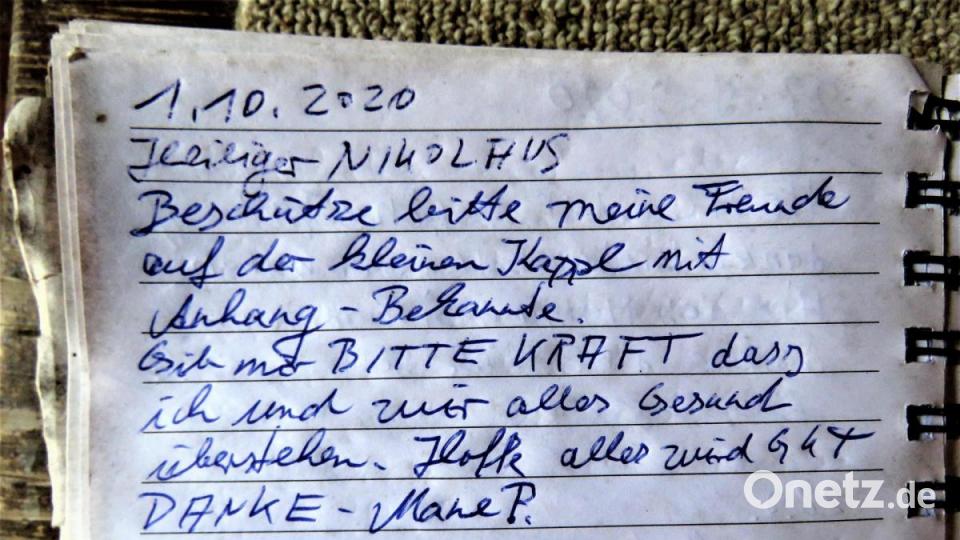 1.10.2020
Heiliger NIKOLAUS
Beschütze bitte meine Freunde
auf der kleinen Kappl mit
Anhang - Bekannte.
Gib mir BITTE KRAFT dass
ich und wir alles Gesund
überstehen. Hoffe alles wird GUT
DANKE - Mane P.
Onetz.de